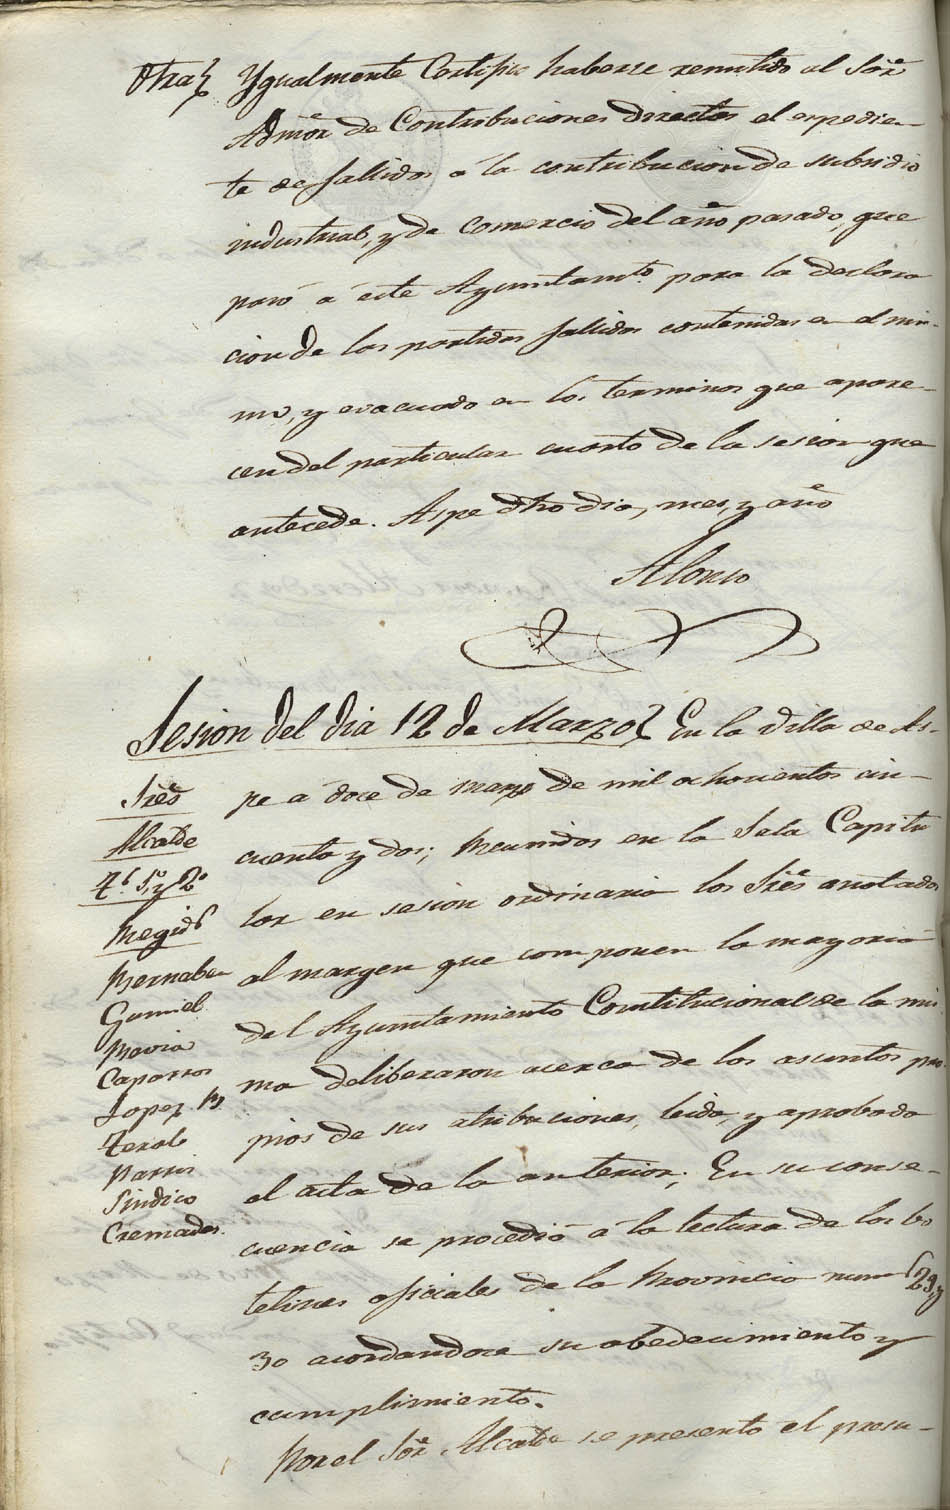 Otra} Ygualmente Certifico haberse remitido al Sōr
Admōr de Contribuciones directas el espedien-
te de fallidos a la contribucion de subsidio
industrial, y de comercio del año pasado, que
pasó á este Ayuntamto. para la declara
cion de las partidas fallidas contenidas en el mis-
mo, y evacuado en los terminos que apare-
cen del particular cuarto de la sesion que
antecede. Aspe dho dia, mes, y año
Alonso
Sesion del dia 12 de Marzo} En la Villa de As-
pe á doce de marzo de mil ochocientos cin-
cuenta y dos; Reunidos en la Sala Capitu
lar en sesion ordinaria los Sres anotados
al margen que componen la mayoria
del Ayuntamiento Constitucional de la mis
ma deliberaron acerca de los asuntos pro
pios de sus atribuciones, leida, y aprobada
el acta de la anterior; En su conse-
cuencia se procedió á la lectura de los bo
letines oficiales de la Provincia nums 29, y
30 acordandose su obedecimiento y
cumplimiento.
Por el Sōr Alcalde se presento el presu-
Sres
Alcalde
Ts. 1o. y 2o
Regids
Bernabeu
Gumiel
Mavia
Caparros
Lopez B
Terol
Parris
Sindico
Cremades.